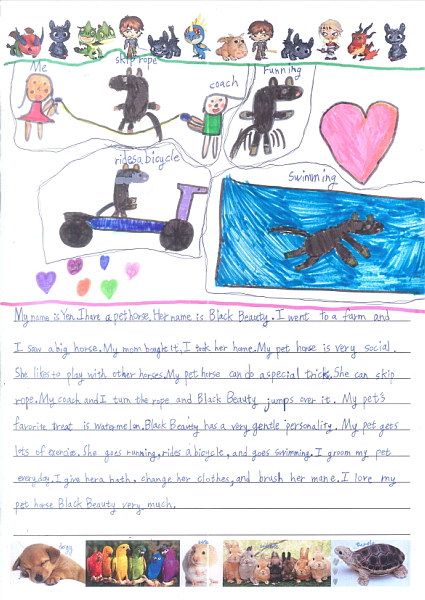 Me
skip rope
coach
running
rides a bicycle
Swimming
My name is Yen. I have a pet horse. Her name is Black Beauty. I went to a farm and
I saw a big horse. My mom bought it. I took her home. My pet horse is very social.
She likes to play with other horses. My pet horse can do a special trick. She can skip
rope. My coach and I turn the rope and Black Beauty jumps over it. My pet's
favorite treat is watermelon. Black Beauty has a very gentle personality. My pet gets
lots of exercise. She goes running, rides a bicycle, and goes swimming. I groom my pet
everyday. I give her a bath, change her clothes, and brush her mane. I love my
pet horse Black Beauty very much.